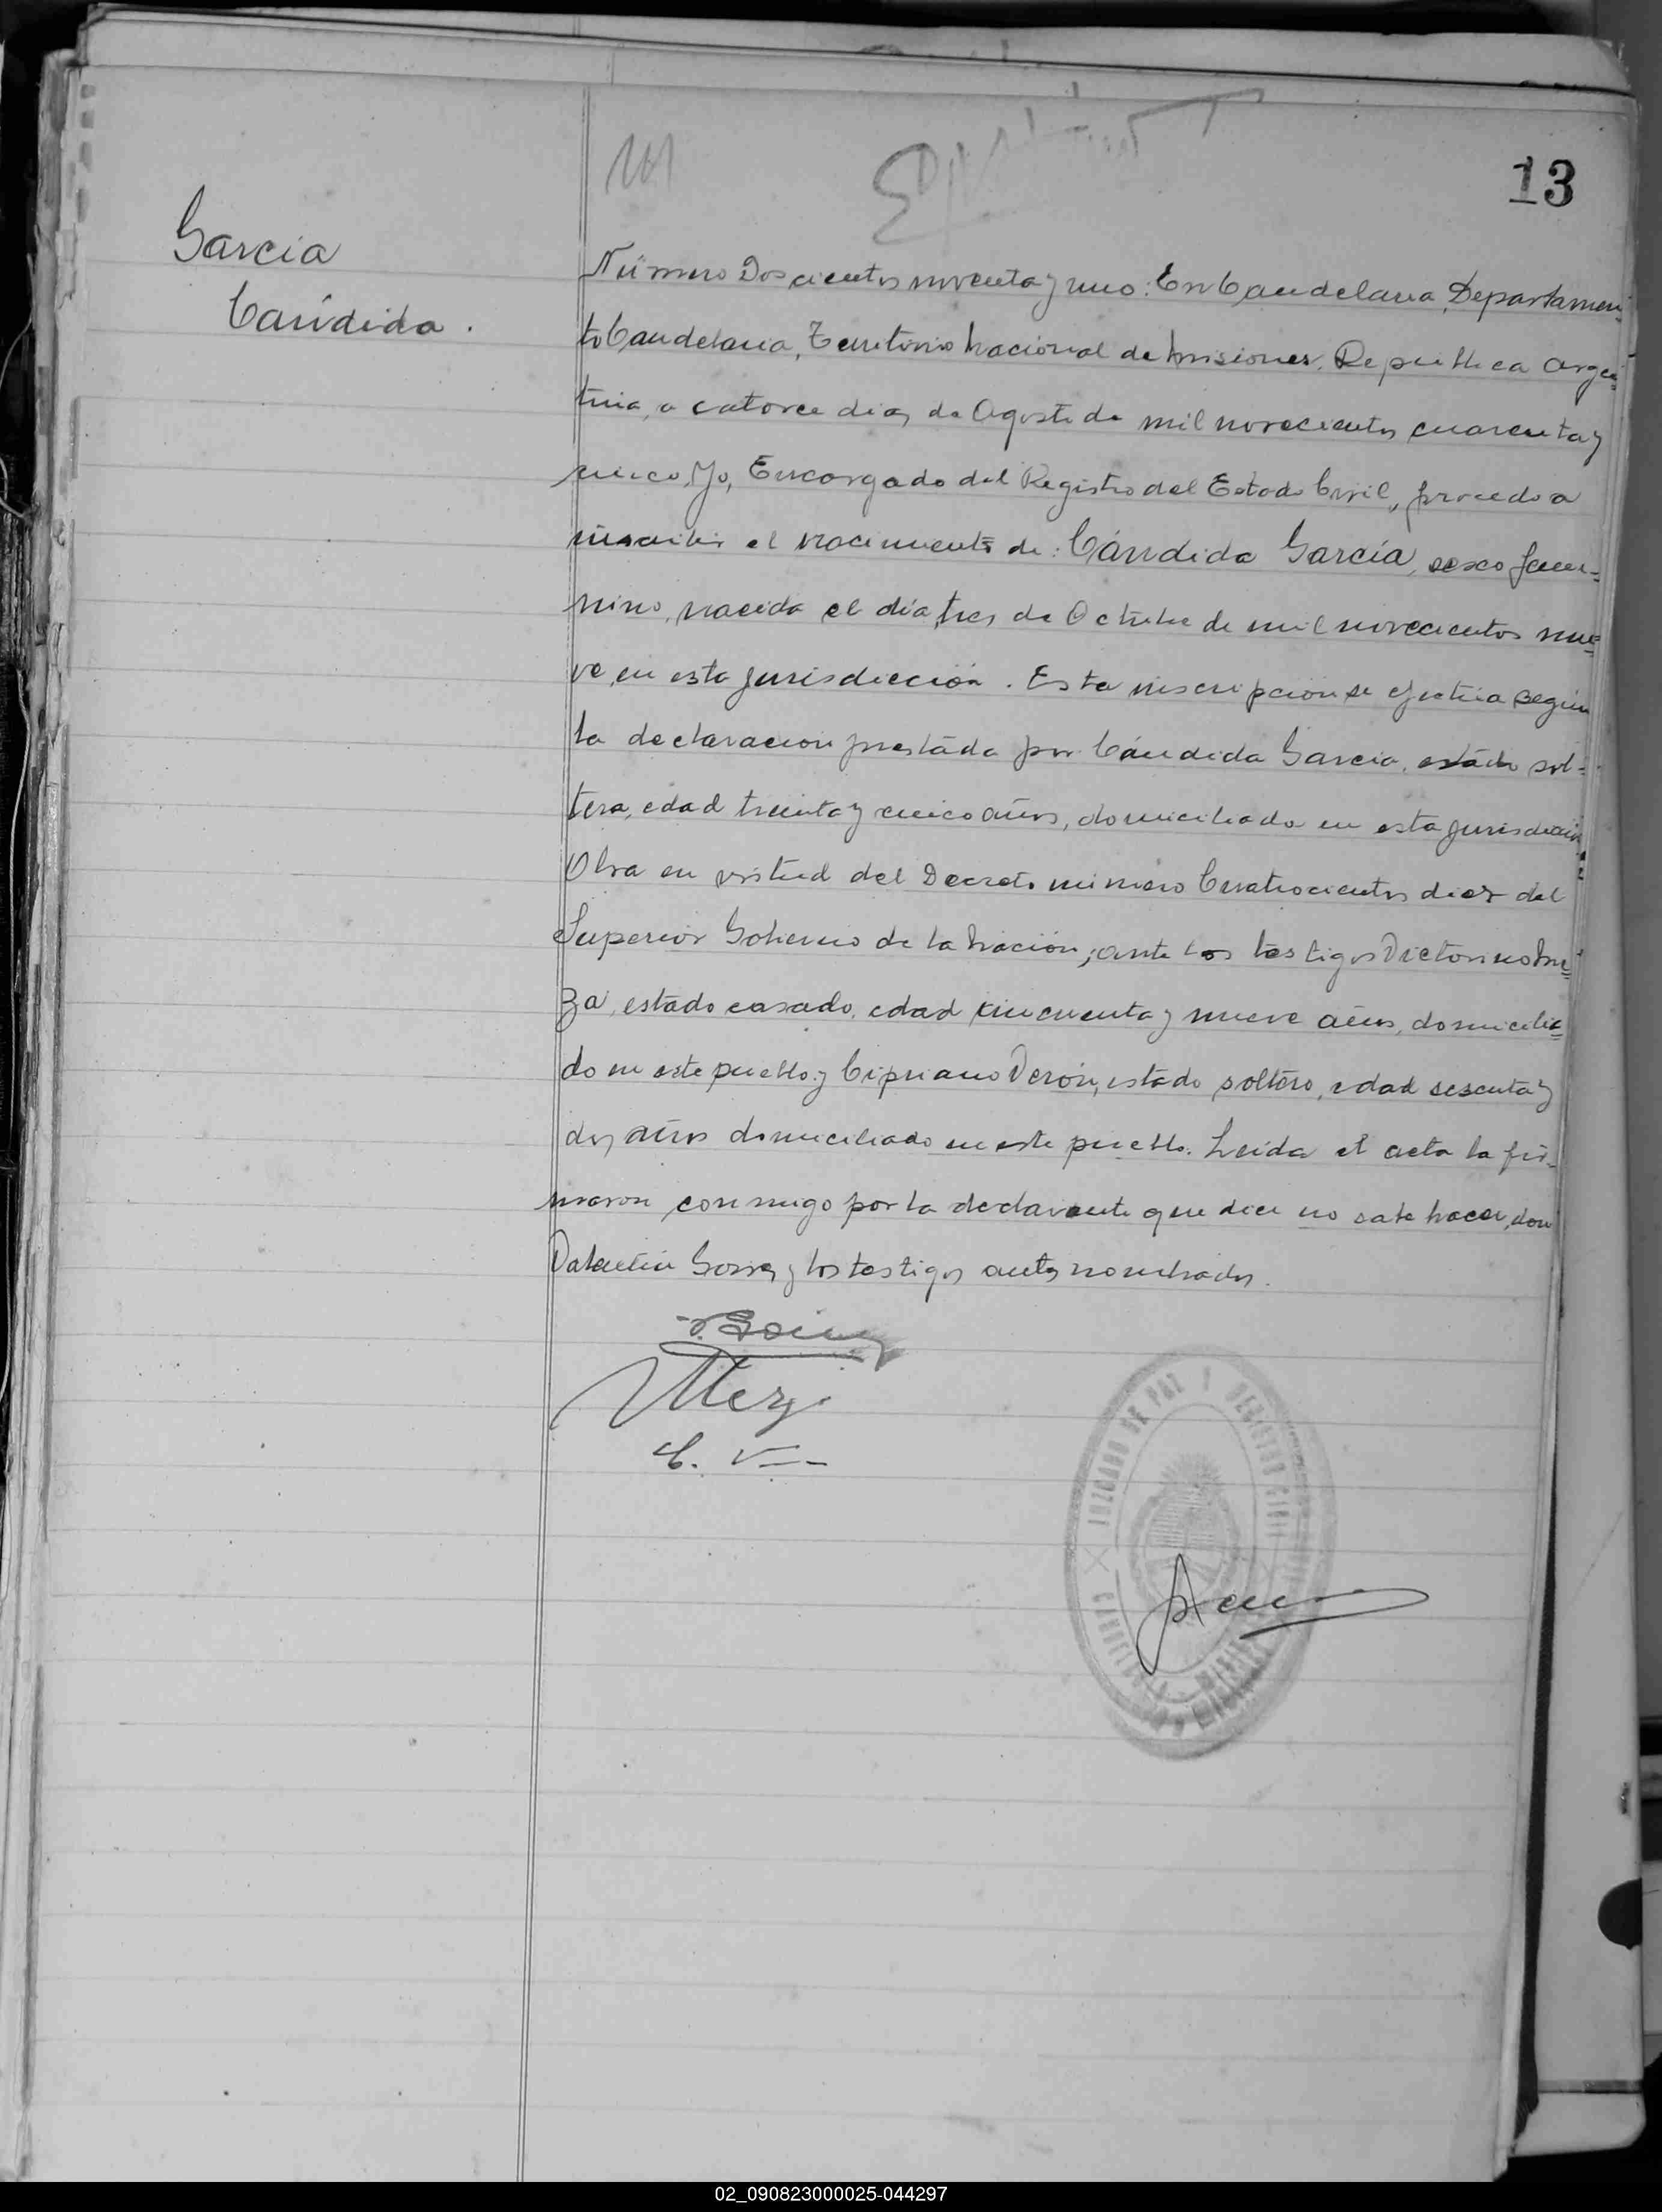 13
Garcia
Cándida.
Número Doscientos noventa y uno: En Candelaria, Departamen-
to Candelaria, Territorio Nacional de Misiones, Republica Argen-
tina, a catorce dias de Agosto de mil novecientos cuarenta y
cinco, Yo, Encargado del Registro del Estado Civil, procedo a
inscribir el nacimiento de: Cándida García, sexo feme-
nino, nacida el día tres de Octubre de mil novecientos nue-
ve, en esta jurisdicción. Esta inscripción se efectúa según
la declaración prestada por Cándida Garcia, estado sol-
tera, edad treinta y cinco años, domiciliada en esta jurisdicción
Obra en virtud del Decreto número Cuatrocientos diez del
Superior Gobierno de la Nación; ante los testigos Victorino Me-
za, estado casado, edad cincuenta y nueve años, domicilia-
do en este pueblo y Cipriano Verón, estado soltero, edad sesenta y
dos años domiciliado en este pueblo. Leida el acta la fir-
maron conmigo por la declarante que dice no sabe hacer, don
Valentin y los testigos antes nombrados.
Meza
C. V
JUZGADO DE PAZ Y REGISTRO CIVIL
02_090823000025-044297